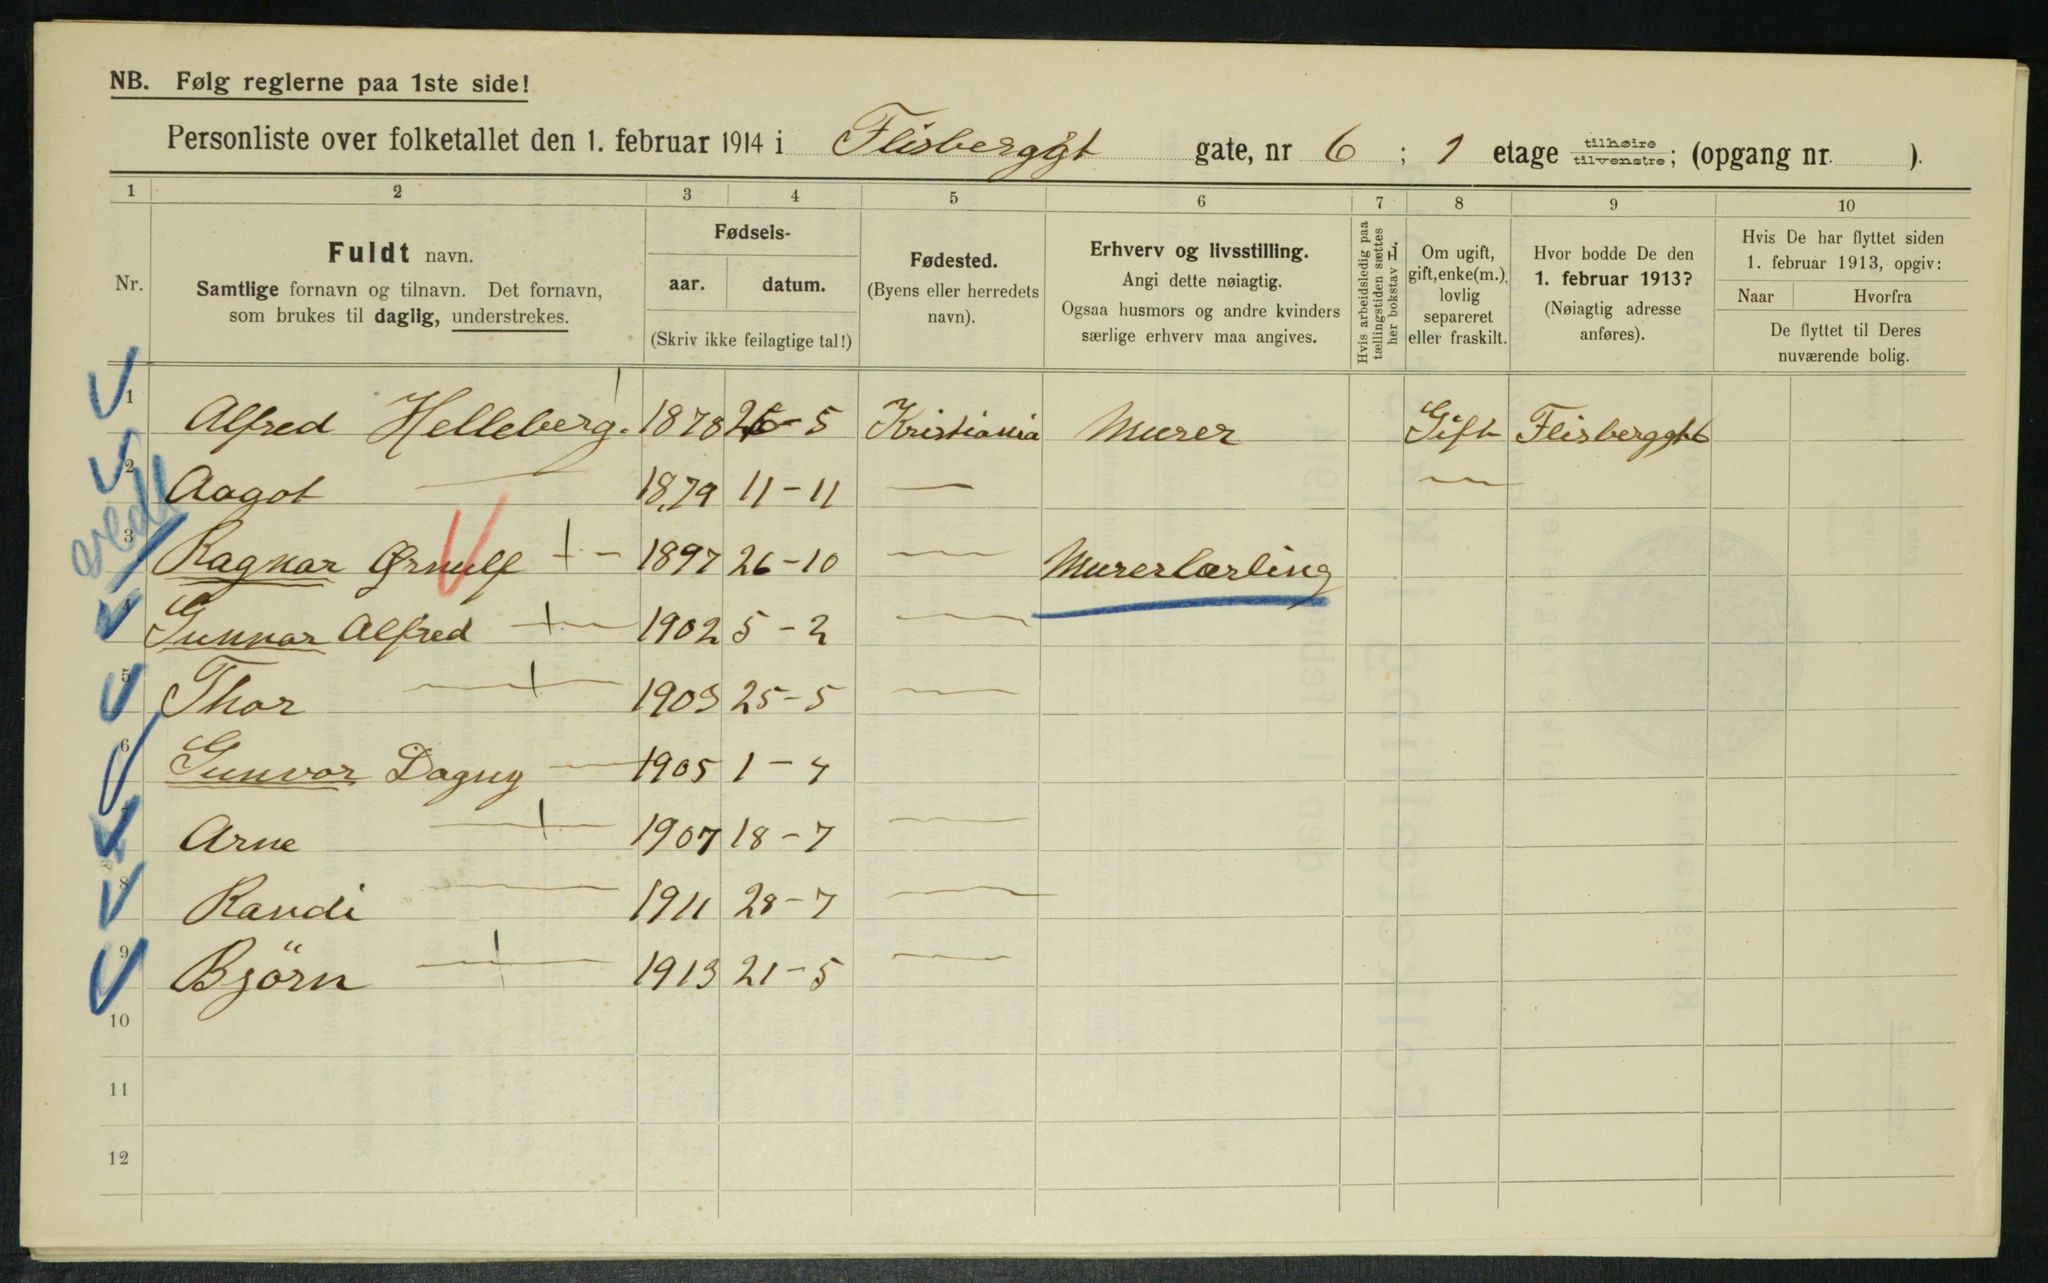 NB. Følg reglerne paa 1ste side!
Personliste over folketallet den 1. februar 1914 i Flisberggt gate, nr 6 ; 1 etage tilhøire tilvenstre; (opgang nr. ).
1 2 3 4 5 6 7 8 9 10
Nr.
Fuldt navn.
Samtlige fornavn og tilnavn. Det fornavn,
som brukes til daglig, understrekes.
Fødsels-
aar. datum.
(Skriv ikke feilagtige tal!)
Fødested.
(Byens eller herredets
navn).
Erhverv og livsstilling.
Angi dette nøiagtig.
Ogsaa husmors og andre kvinders
særlige erhverv maa angives.
Hvis arbeidsledig paa
tællingstiden sættes
her bokstav L.
Om ugift,
gift, enke(m.),
lovlig
separeret
eller fraskilt.
Hvor bodde De den
1. februar 1913?
(Nøiagtig adresse
anføres).
Hvis De har flyttet siden
1. februar 1913, opgiv:
Naar Hvorfra
De flyttet til Deres
nuværende bolig.
1 Alfred Helleberg. 1878 26-5 Kristiania Murer Gift Flisberggt 6
2 Aagot — 1879 11-11 — —
3 Ragnar Ørnulf — 1897 26-10 — Murerlærling
4 Gunnar Alfred — 1902 5-2 —
5 Thor — 1903 25-5 —
6 Gunvor Dagny — 1905 1-4
7 Arne — 1907 18-7 —
8 Randi — 1911 28-7 —
9 Björn — 1913 21-5 —
10
11
12